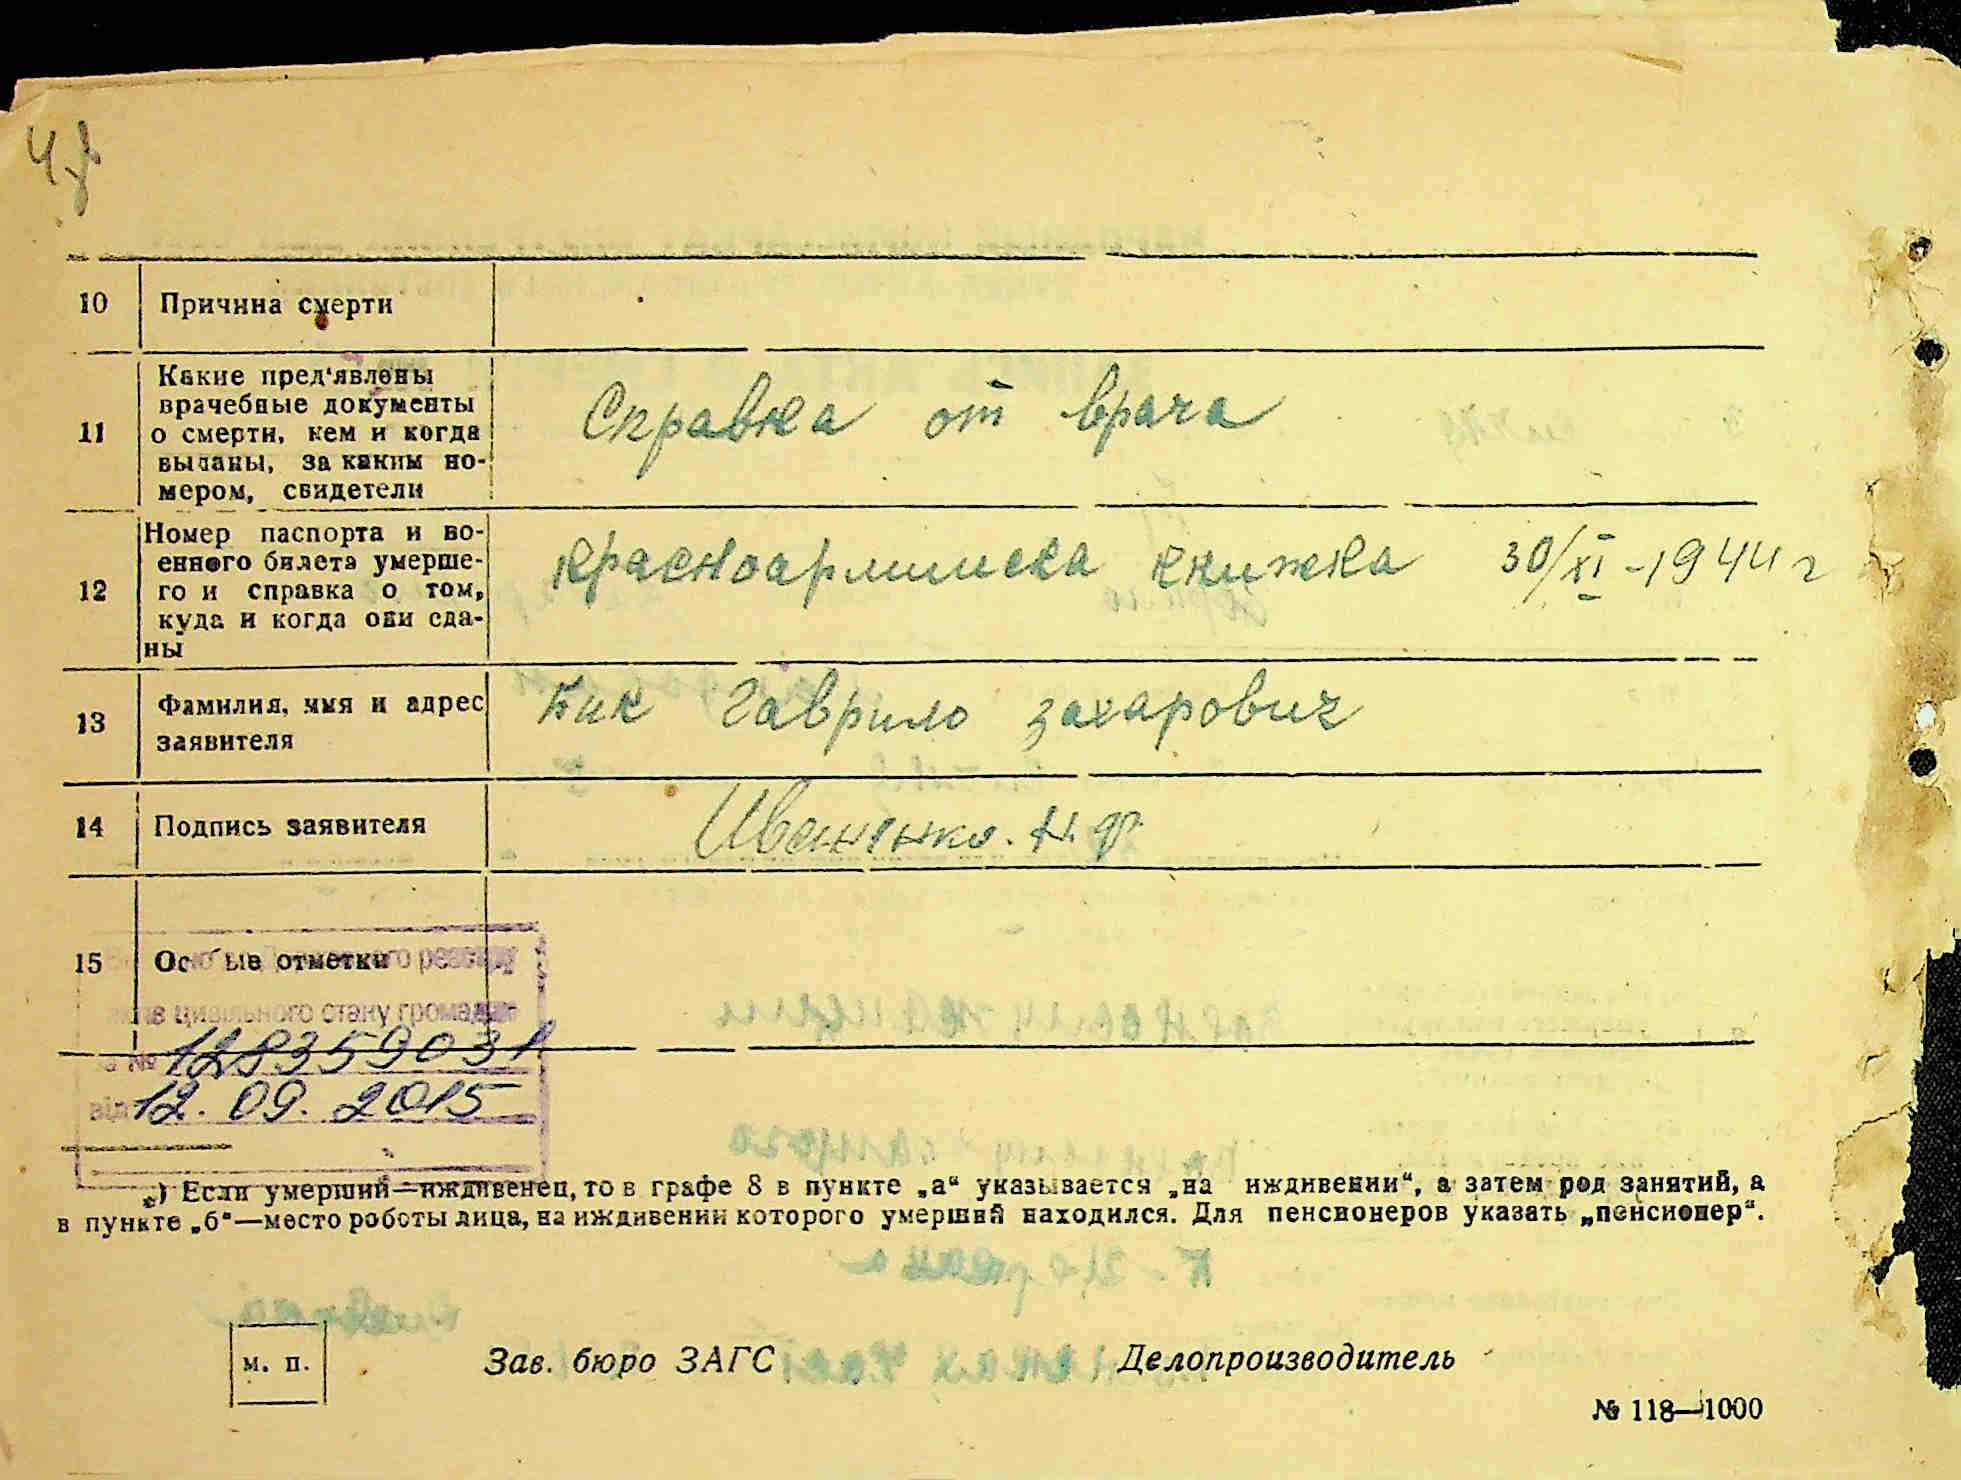 10 Причина смерти
11 Какие пред'явлены
врачебные документы
о смерти, кем и когда
выданы, за каким но-
мером, свидетели
Справка от врача
12 Номер паспорта и во-
енного билета умерше-
го и справка о том,
куда и когда они сда-
ны
красноармииска книжка 30/XI-1944 г
13 Фамилия, имя и адрес
заявителя
Бик Гаврило Захарович
14 Подпись заявителя
Иваненко. Н.Ф.
15 Особые отметки
го реєстру
цивільного стану громадян
за № 128359031
від 12.09.2015
*) Если умерший—иждивенец, то в графе 8 в пункте „а“ указывается „на иждивении“, а затем род занятий, а
в пункте „б“—место роботы лица, на иждивении которого умерший находился. Для пенсионеров указать „пенсионер“.
м. п.
Зав. бюро ЗАГС Делопроизводитель
№ 118—1000